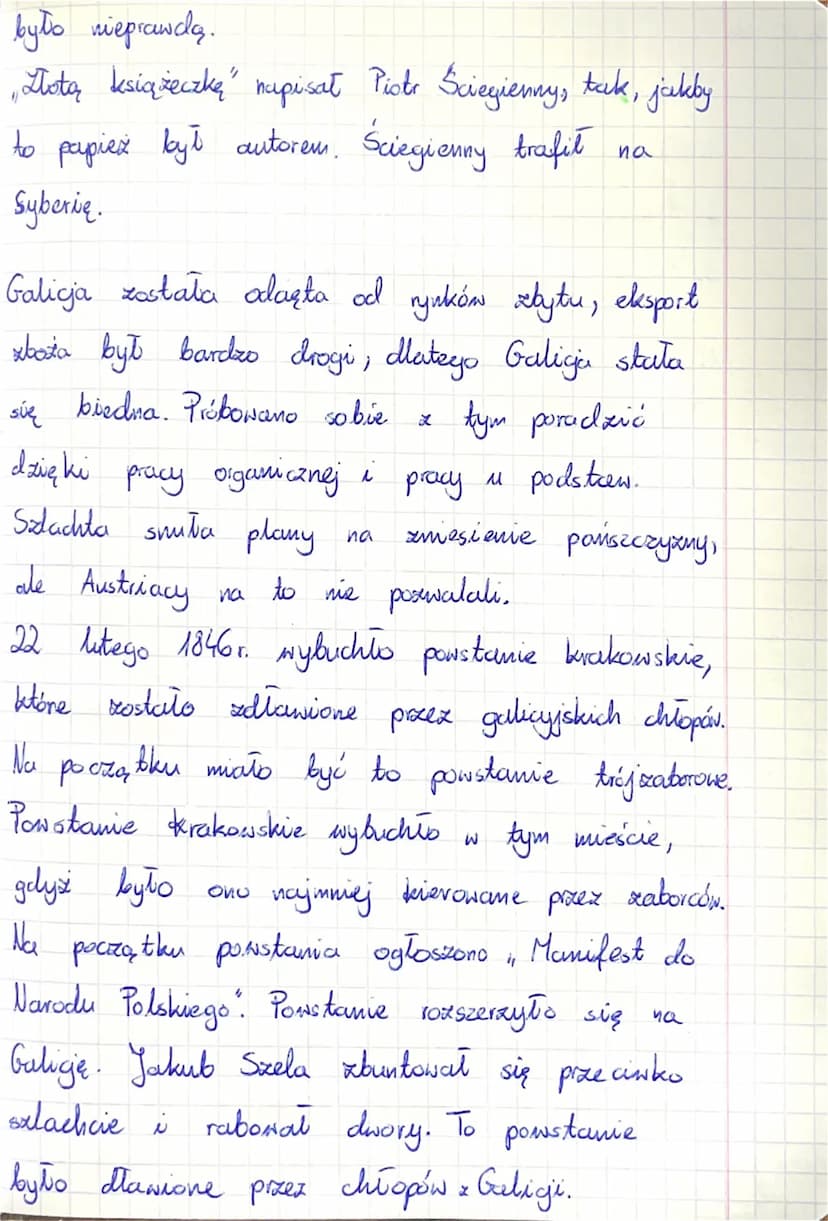 było nieprawdą.
„Złotą książeczkę" napisał Piotr Ściegienny, tak, jakby
to papież był autorem. Ściegienny trafił na
Syberię.
Galicja została odcięta od rynków zbytu, eksport
zboża był bardzo drogi, dlatego Galicja stała
się biedna. Próbowano sobie z tym poradzić
dzięki pracy organicznej i pracy u podstaw.
Szlachta snuła plany na zniesienie pańszczyzny,
ale Austriacy na to nie pozwalali.
22 lutego 1846r. wybuchło powstanie krakowskie,
które zostało zdławione przez galicyjskich chłopów.
Na początku miało być to powstanie trójzaborowe.
Powstanie krakowskie wybuchło w tym mieście,
gdyż było ono najmniej kierowane przez zaborców.
Na początku powstania ogłoszono „Manifest do
Narodu Polskiego". Powstanie rozszerzyło się na
Galicję. Jakub Szela zbuntował się przeciwko
szlachcie i rabował dwory. To powstanie
było dławione przez chłopów z Galicji.